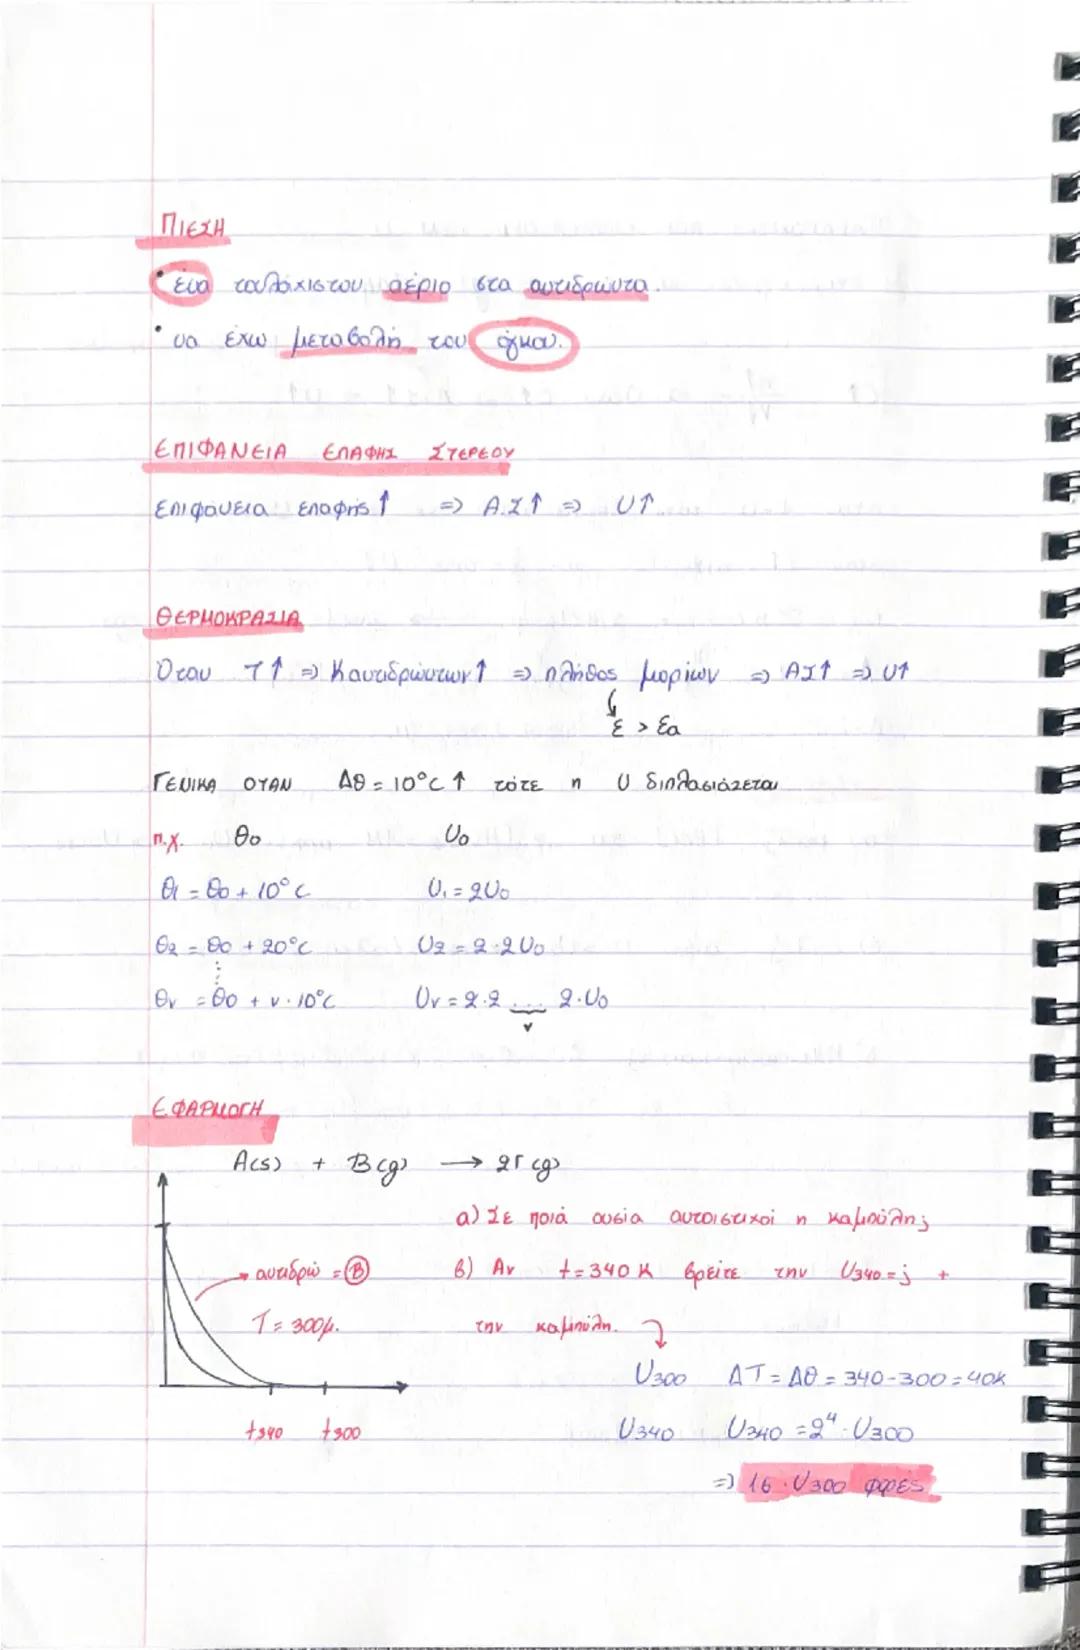 ΠΙΕΣΗ
• ένα τουλάχιστον αέριο στα αντιδρώντα.
• να έχω μεταβολή του όγκου.
ΕΠΙΦΑΝΕΙΑ ΕΠΑΦΗΣ ΣΤΕΡΕΟΥ
Επιφάνεια επαφής ↑ => Α.Σ ↑ => U↑
ΘΕΡΜΟΚΡΑΣΙΑ
Όταν T↑ => Kαντιδρώντων↑ => πλήθος μορίων => ΑΣ↑ => U↑
ε > εa
ΓΕΝΙΚΑ ΟΤΑΝ Δθ = 10°C ↑ τότε η U διπλασιάζεται
π.χ. θ0 U0
θ1 = θ0 + 10°C U1 = 2U0
θ2 = θ0 + 20°C U2 = 2·2U0
θν = θ0 + ν·10°C Uν = 2·2 ... 2·U0
ν
ΕΦΑΡΜΟΓΗ
A(s) + B(g) → 2Γ(g)
α) Σε ποιά ουσία αντοιστιχοί η καμπύλη;
αντιδρώ = Β β) Αν t = 340 K βρείτε την U340 = ; +
T = 300μ. την καμπύλη.
U300 ΔΤ = Δθ = 340-300 = 40K
t340 t300 U340 U340 = 2⁴·U300
=> 16·U300 φορές